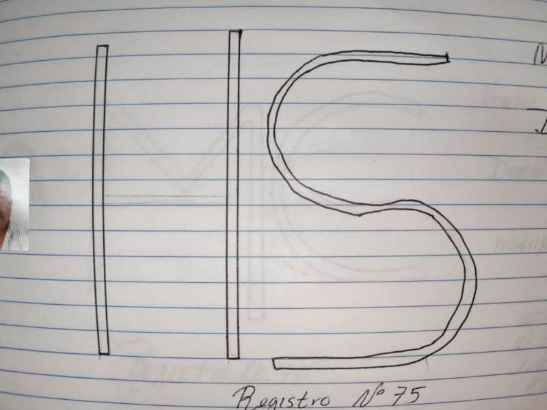 IIS
Registro Nº 75